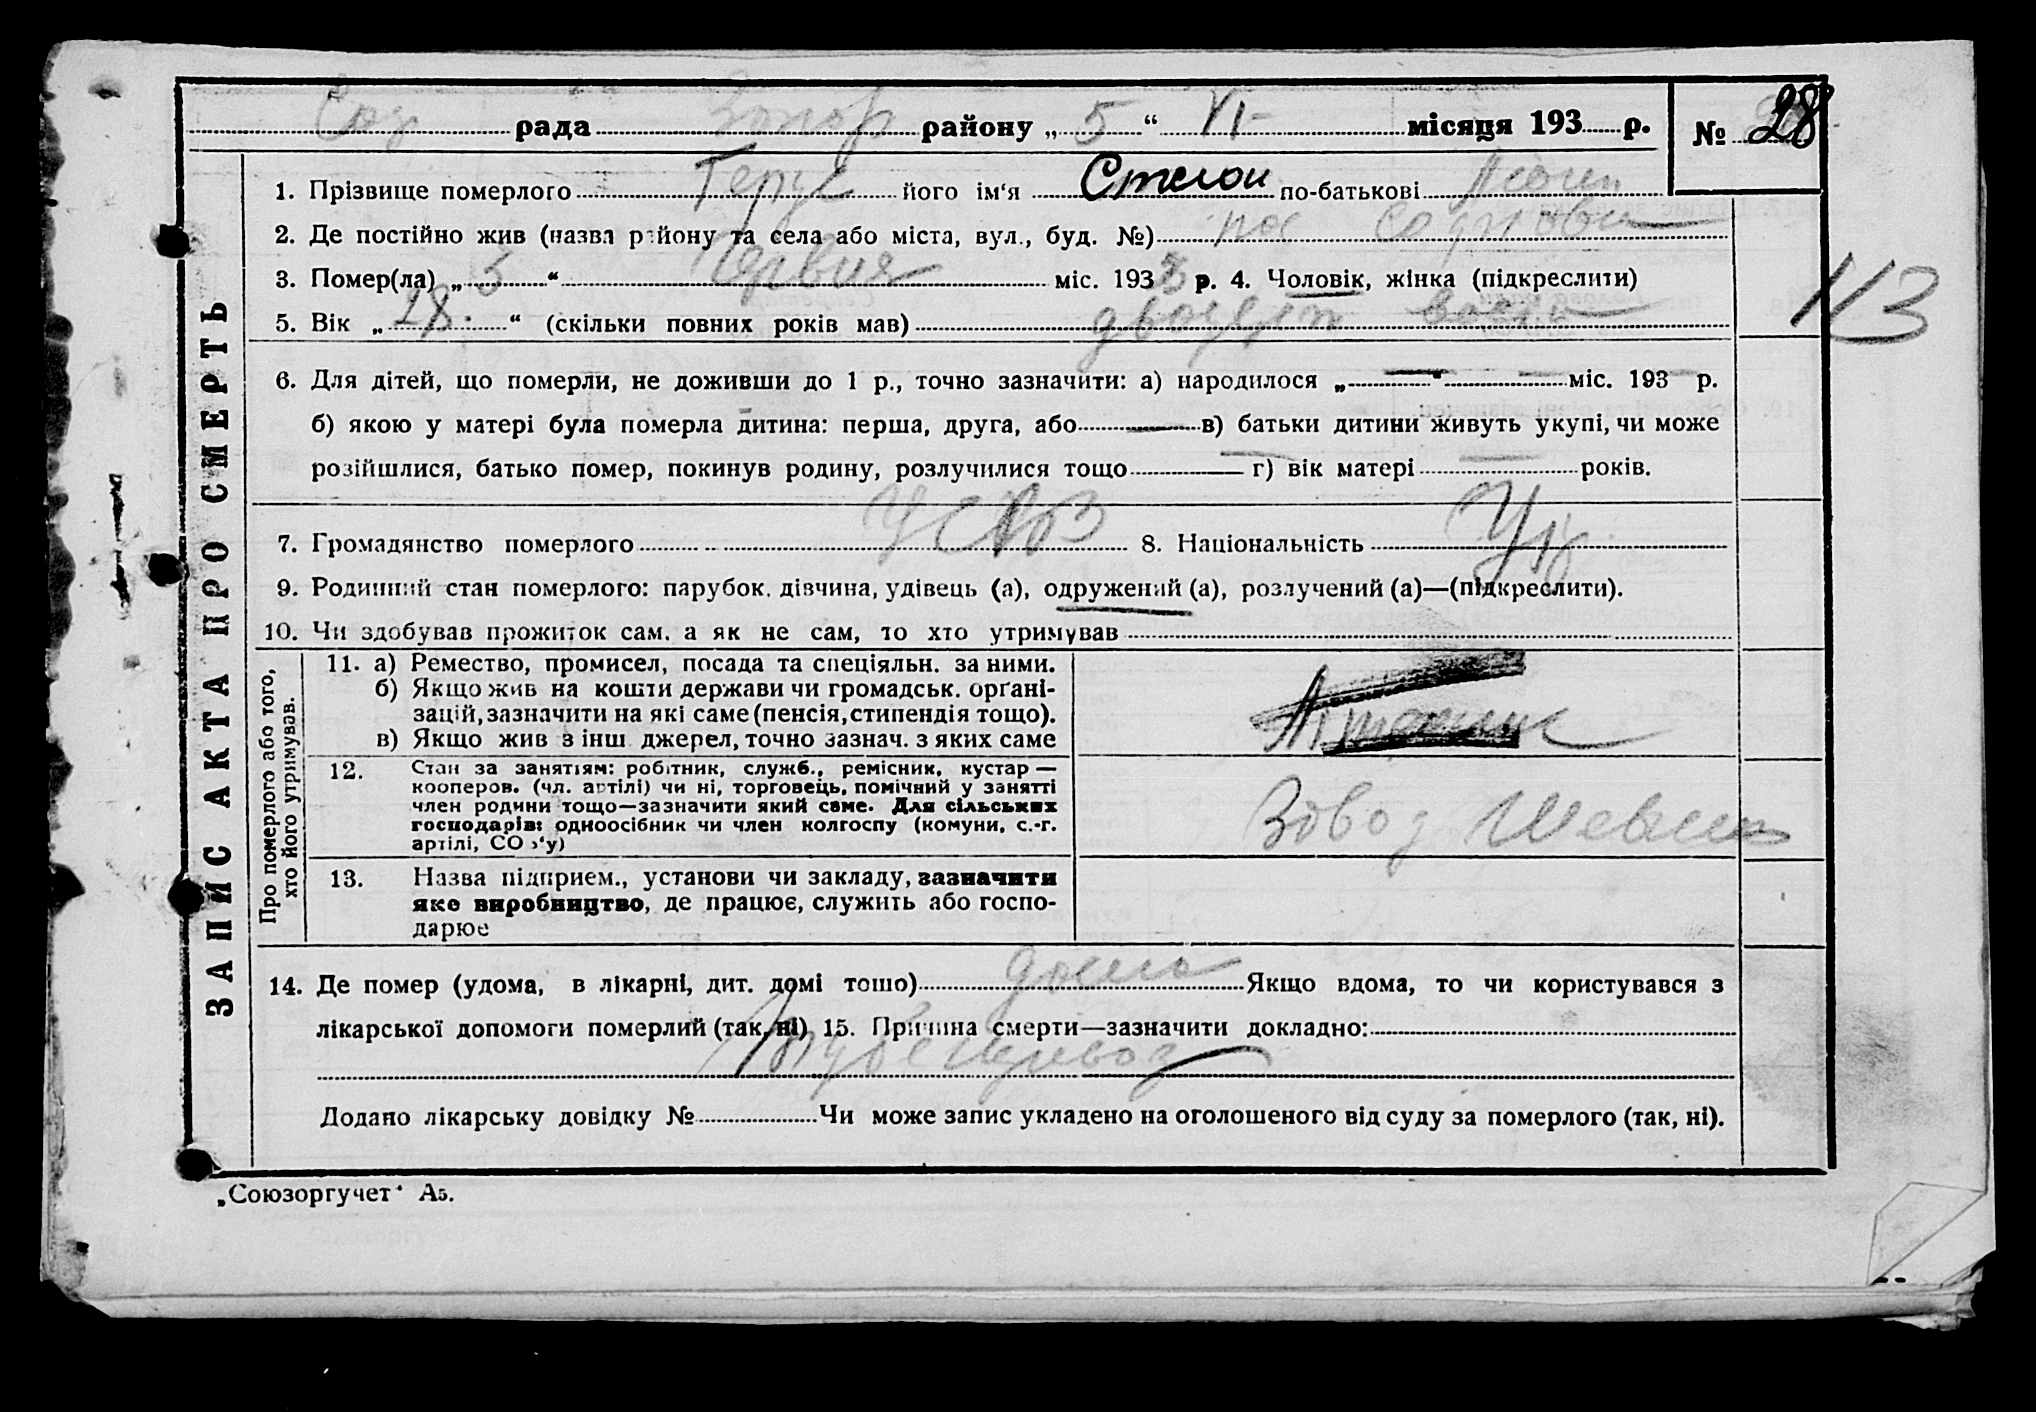 рада Запор району „ 5 “ VI- місяця 193 р. № 28
1. Прізвище померлого його ім‘я Степан по-батькові
2. Де постійно жив (назва району та села або міста, вул., буд. №)
3. Помер(ла) „ 5 “ Червня міс. 1933 р. 4. Чоловік, жінка (підкреслити)
113
5. Вік „ 28. “ (скільки повних років мав) двадцять
6. Для дітей, що померли, не доживши до 1 р., точно зазначити: а) народилося „ — “ — міс. 193 — р.
б) якою у матері була померла дитина: перша, друга, або — в) батьки дитини живуть укупі, чи може
розійшлися, батько помер, покинув родину, розлучилися тощо — г) вік матері — років.
7. Громадянство померлого 8. Національність Укр
9. Родинний стан померлого: парубок, дівчина, удівець (а), одружений (а), розлучений (а)—(підкреслити).
10. Чи здобував прожиток сам, а як не сам, то хто утримував
Про померлого або того,
хто його утримував.
11. а) Ремество, промисел, посада та спеціяльн. за ними.
б) Якщо жив на кошти держави чи громадськ. орґані-
зацій, зазначити на які саме (пенсія, стипендія тощо).
в) Якщо жив з інш. джерел, точно зазнач. з яких саме
12. Стан за занятіям: робітник, служб., ремісник, кустар —
кооперов. (чл. артілі) чи ні, торговець, помічний у занятті
член родини тощо—зазначити який саме. Для сільських
господарів: одноосібник чи член колгоспу (комуни, с.-г.
артілі, СО з‘у)
13. Назва підприєм., установи чи закладу, зазначити
яке виробництво, де працює, служить або госпо-
дарює
14. Де помер (удома, в лікарні, дит. домі тощо) дома Якщо вдома, то чи користувався з
лікарської допомоги померлий (так, ні) 15. Причина смерти—зазначити докладно:
Додано лікарську довідку № Чи може запис укладено на оголошеного від суду за померлого (так, ні).
ЗАПИС АКТА ПРО СМЕРТЬ
„Союзоргучет“ А5.